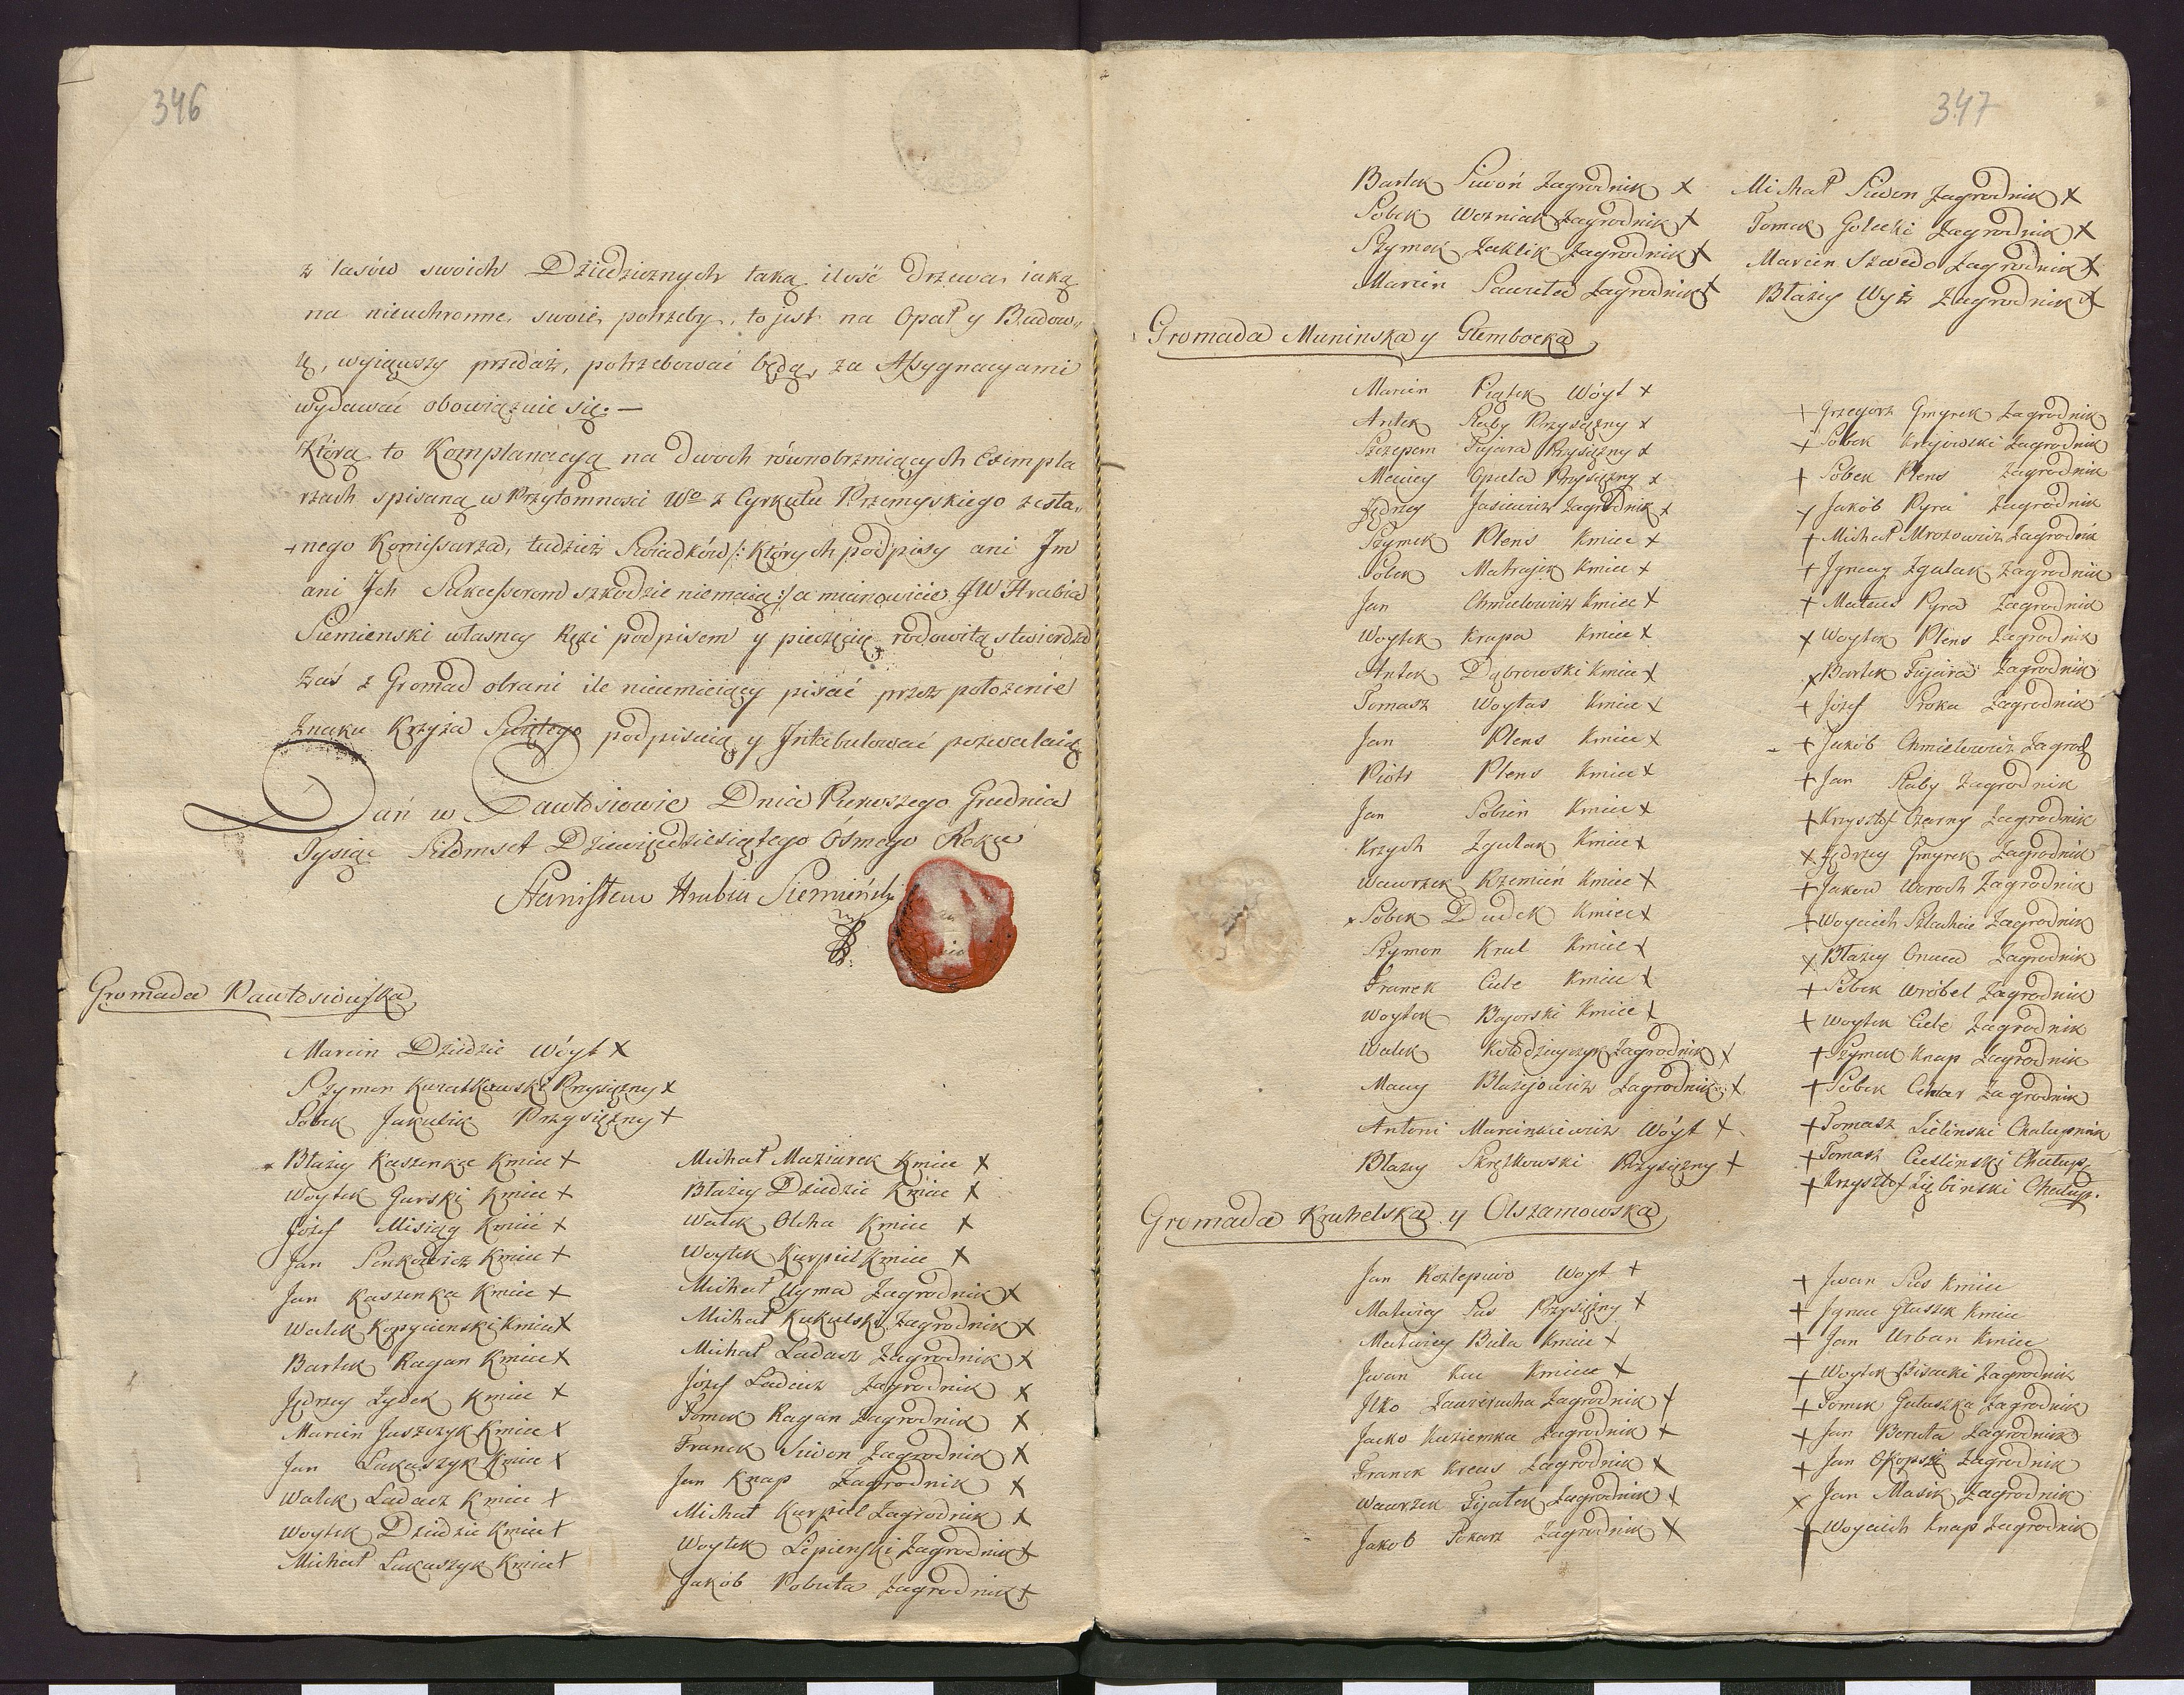 346
z lasów swoich Dziedzicznych taką ilość drzewa iaką
na nieuchronne swoie potrzeby, to jest na Opał y Budow„
lę, wyiąwszy przedaż, potrzebować będą, za Assygnacyami
wydawać obowiązuie się. —
Którą to Komplanacyą na dwoch równobrzmiących Exempla
rzach spisaną w Przytomności Wo z Cyrkułu Przemyskiego zesła„
nego Komissarza, tudzież Swiadków /: których podpisy ani Im
ani Ich Sukcessorom szkodzić niemaią :/ a mianowicie JW Hrabia
Siemienski własney ręki podpisem y pieczęcią rodowitą stwierdza
Zaś z Gromad obrani ile nieumieiący pisać przez położenie
Znaku Krzyża Swiętego podpisuią y Intabulować pozwalaią
Dań w Pawłosiowie Dnia Pierwszego Grudnia
Tysiąc Siedmset Dziewięćdziesiątego Osmego Roku
Stanisław Hrabia Siemieński
Gromada Pawłosiowska
Marcin Dziedzic Wóyt X
Szymon Kwiatkowski Przysiężny X
Sobek Jakubik Przysiężny +
Błażey Kaszenka Kmiec +
Woytek Gurski Kmiec +
Józef Misiąg Kmiec +
Jan Senkowicz Kmiec +
Jan Kaszenka Kmiec +
Walek Kopycienski Kmiec X
Bartek Ragan Kmiec X
Jędrzey Zydek Kmiec X
Marcin Juszczyk Kmiec X
Jan Łukaszyk Kmiec X
Walek Ladacz Kmiec +
Woytek Dziedzic Kmiec +
Michał Łukaszyk Kmiec +
Michał Maziarek Kmiec X
Błażey Dziedzic Kmiec X
Walek Olcha Kmiec X
Woytek Kurpiel Kmiec X
Michał Uyma Zagrodnik X
Michał Kukulski Zagrodnik X
Michał Ladacz Zagrodnik X
Józef Ladacz Zagrodnik X
Tomek Ragan Zagrodnik X
Franek Siwon Zagrodnik X
Jan Knap Zagrodnik X
Michał Kurpiel Zagrodnik X
Woytek Lipienski Zagrodnik X
Jakób Pobuta Zagrodnik X
347
Bartek Siwoń Zagrodnik X
Sobek Wozniak Zagrodnik X
Szymek Zaklik Zagrodnik X
Marcin Zagrodnik X
Michał Siwon Zagrodnik X
Tomek Golecki Zagrodnik X
Marcin Szwedo Zagrodnik X
Błażey Wyż Zagrodnik X
Gromada Muninska y Głembocka
Marcin Piątek Wóyt +
Antek Słaby Przysiężny X
Szczepem Fujara Przysiężny X
Maciey Opała Przysiężny X
Jędrzey Jasiewicz Zagrodnik X
Szymek Plens Kmiec X
Sobek Matrajek Kmiec X
Jan Chmielowicz Kmiec X
Woytek Krupa Kmiec X
Antek Dąbrowski Kmiec X
Tomasz Woytas Kmiec X
Jan Plens Kmiec X
Piotr Plens Kmiec X
Jan Sobień Kmiec X
Krzych Zgułak Kmiec X
Wawrzek Krzemień Kmiec X
Sobek Dudek Kmiec X
Szymon Krul Kmiec X
Franek Cule Kmiec X
Woytek Bajorski Kmiec X
Walek Kołodzieyczyk Zagrodnik X
Macey Błażejowicz Zagrodnik X
Antoni Marcinkiewicz Wóyt X
Błażey Skrętkowski Przysiężny +
+ Grzegorz Gmyrek Zagrodnik
+ Sobek Krajowski Zagrodnik
+ Sobek Plens Zagrodnik
+ Jakób Pyra Zagrodnik
+ Michał Mrozowicz Zagrodnik
+ Jgnacy Zgułak Zagrodnik
+ Mateus Pyra Zagrodnik
X Woytek Plens Zagrodnik
X Bartek Fujara Zagrodnik
+ Józef Sroka Zagrodnik
+ Jakób Chmielowicz Zagrod
+ Jan Słaby Zagrodnik
+ Krzysztof Czarny Zagrodnik
X Jędrzey Gmyrek Zagrodnik
+ Jakow Woroch Zagrodnik
+ Woyciech Szlachcic Zagrodnik
X Błażey Zagrodnik
+ Sobek Wróbel Zagrodnik
+ Woytek Cule Zagrodnik
+ Szymek Knap Zagrodnik
+ Sobek Zagrodnik
+ Tomasz Zielinski Chałupnik
+ Tomasz Cieslinski Chałup
+ Krzysztof Ziębinski Chałup.
Gromada Kruhelska y Olszanowska
Jan Kozłepiwo Woyt +
Matwiey Sus Przysiężny +
Matwiey Buła Kmiec X
Jwan Kuc Kmiec X
Jlko Zawierucha Zagrodnik X
Jacko Kuziemka Zagrodnik X
Franek Kreus Zagrodnik X
Wawrzek Fijałek Zagrodnik X
Jakob Pekarz Zagrodnik X
+ Jwan Sus Kmiec
+ Jgnac Głuszek Kmiec
+ Jan Urban Kmiec
+ Woytek Pisacki Zagrodnik
+ Tomek Gałuszka Zagrodnik
+ Jan Beruta Zagrodnik
+ Jan Okopski Zagrodnik
X Jan Masik Zagrodnik
+ Woyciech Knap Zagrodnik